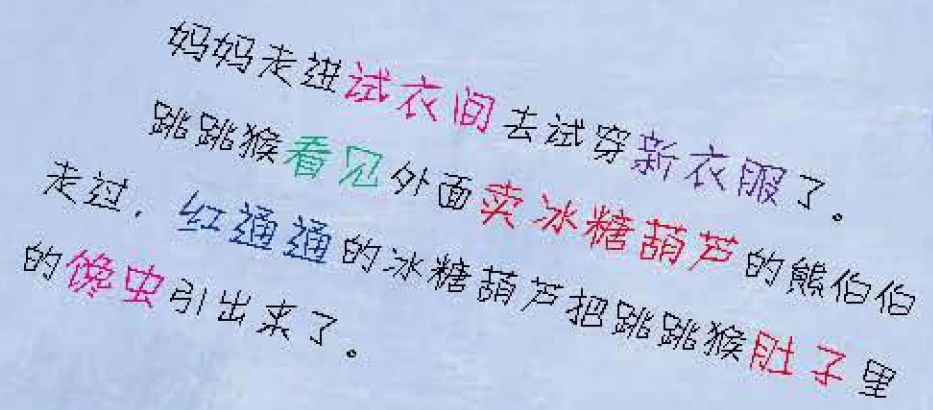 妈妈走进试衣间去试穿新衣服了。
跳跳猴看见外面卖冰糖葫芦的熊伯伯
走过，红通通的冰糖葫芦把跳跳猴肚子里
的馋虫引出来了。